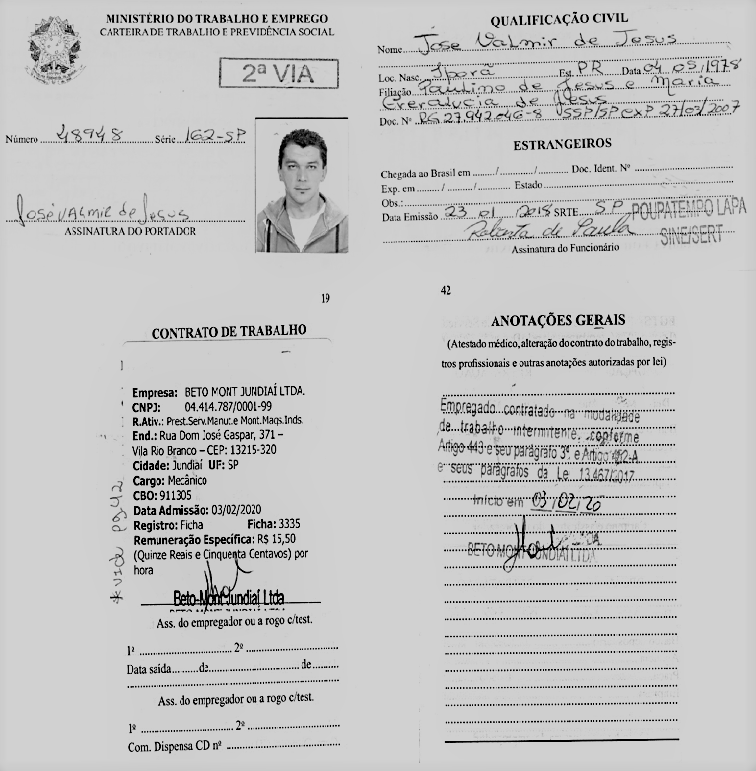 MINISTÉRIO DO TRABALHO E EMPREGO
CARTEIRA DE TRABALHO E PREVIDÊNCIA SOCIAL
2ª VIA
Número 48948 Série 162-SP
José Valmir de Jesus
ASSINATURA DO PORTADOR
QUALIFICAÇÃO CIVIL
Nome Jose Valmir de Jesus
Loc. Nasc. Iporã Est. PR Data 04 05 1978
Filiação Paulino de Jesus e Maria
de Jesus
Doc. Nº RG 27.942.046-8 SSP/SP EXP 27/03/2007
ESTRANGEIROS
Chegada ao Brasil em ....../....../...... Doc. Ident. Nº
Exp. em ....../....../...... Estado
Obs.:
Data Emissão 23 01 2018 SRTE SP POUPATEMPO LAPA
Roberta de Paula SINE/SERT
Assinatura do Funcionário
19
CONTRATO DE TRABALHO
Empresa: BETO MONT JUNDIAÍ LTDA.
CNPJ: 04.414.787/0001-99
R.Ativ.: Prest.Serv.Manut.e Mont.Maqs.Inds.
End.: Rua Dom José Gaspar, 371 –
Vila Rio Branco – CEP: 13215-320
Cidade: Jundiaí UF: SP
Cargo: Mecânico
CBO: 911305
Data Admissão: 03/02/2020
Registro: Ficha Ficha: 3335
Remuneração Específica: R$ 15,50
(Quinze Reais e Cinquenta Centavos) por
hora
* vide pg 42
Beto Mont Jundiaí Ltda
Ass. do empregador ou a rogo c/test.
1º 2º
Data saída de de
Ass. do empregador ou a rogo c/test.
1º 2º
Com. Dispensa CD nº
42
ANOTAÇÕES GERAIS
(Atestado médico, alteração do contrato do trabalho, regis-
tros profissionais e outras anotações autorizadas por lei)
Empregado contratado na modalidade
de trabalho intermitente, conforme
Artigo 443 e seu parágrafo 3º e Artigo 452-A
e seus parágrafos da Le 13.467/2017
Início em 03/02/20
BETO MONT JUNDIAÍ LTDA